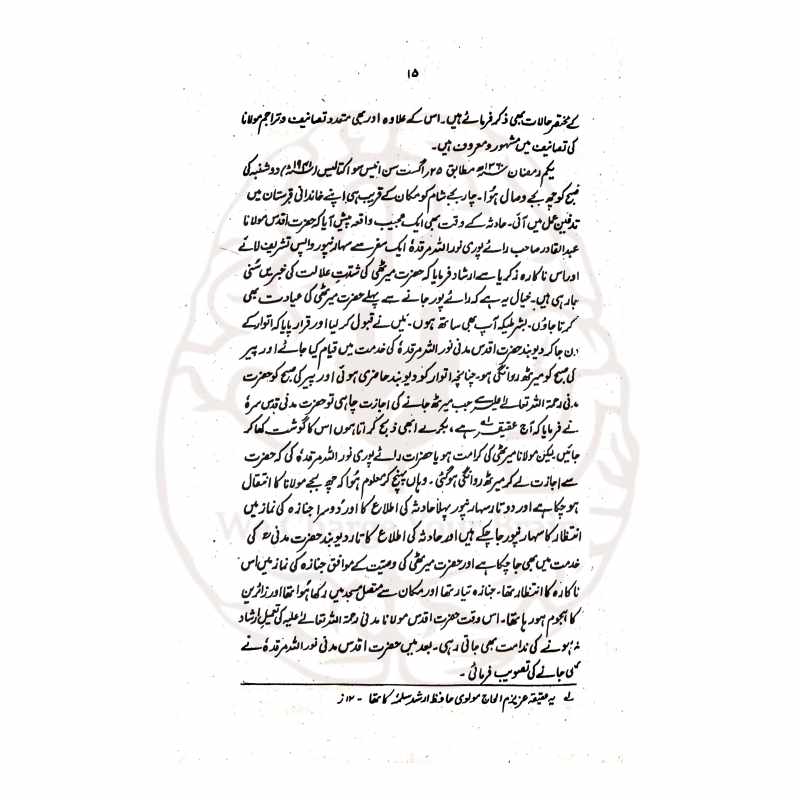 ۱۵
کے مختصر حالات بھی ذکر فرمائے ہیں۔ اس کے علاوہ اور بھی متعدد تصانیف و تراجم مولانا
کی تصانیف میں مشہور و معروف ہیں۔
یکم رمضان ۱۳۶۰ھ مطابق ۲۵ اگست سن انیس سو اکتالیس (۱۹۴۱ء) دوشنبہ کی
صبح کو چھ بجے وصال ہوا۔ چار بجے شام کو مکان کے قریب ہی اپنے خاندانی قبرستان میں
تدفین عمل میں آئی۔ حادثہ کے وقت بھی ایک عجیب واقعہ پیش آیا کہ حضرت اقدس مولانا
عبدالقادر صاحب رائے پوری نور اللہ مرقدہٗ ایک سفر سے سہارنپور واپس تشریف لائے
اور اس ناکارہ زکریا سے ارشاد فرمایا کہ حضرت میرٹھی کی شدتِ علالت کی خبریں سُنی
جا رہی ہیں۔ خیال یہ ہے کہ رائے پور جانے سے پہلے حضرت میرٹھی کی عیادت بھی
کرتا جاؤں۔ بشرطیکہ آپ بھی ساتھ ہوں۔ میں نے قبول کر لیا اور قرار پایا کہ اتوار کے
دن جا کر دیوبند حضرت اقدس مدنی نور اللہ مرقدہٗ کی خدمت میں قیام کیا جائے اور پیر
کی صبح کو میرٹھ روانگی ہو۔ چنانچہ اتوار کو دیوبند حاضری ہوئی اور پیر کی صبح کو حضرت
مدنی رحمۃ اللہ تعالےٰ علیہ سے جب میرٹھ جانے کی اجازت چاہی تو حضرت مدنی قدس سرہٗ
نے فرمایا کہ آج عقیقہ لہ ہے، بکرے ابھی ذبح کراتا ہوں اس کا گوشت کھا کر
جائیں لیکن مولانا میرٹھی کی کرامت ہو یا حضرات رائے پوری نور اللہ مرقدہٗ کی کہ حضرت
سے اجازت لے کر میرٹھ روانگی ہو گئی۔ وہاں پہنچ کر معلوم ہوا کہ چھ بجے مولانا کا انتقال
ہو چکا ہے اور دو تار سہارنپور پہلا حادثہ کی اطلاع کا اور دُوسرا جنازہ کی نماز میں
انتظار کا سہارنپور جا چکے ہیں اور حادثہ کی اطلاع کا تار دیوبند حضرت مدنی ؒ کی
خدمت میں بھی جا چکا ہے اور حضرت میرٹھی کی وصیت کے موافق جنازہ کی نماز میں اس
ناکارہ کا انتظار تھا۔ جنازہ تیار تھا اور مکان سے متصل مسجد میں رکھا ہوا تھا اور زائرین
کا ہجوم ہو رہا تھا۔ اس وقت حضرت اقدس مولانا مدنی رحمۃ اللہ تعالےٰ علیہ کی تعمیل ارشاد
نہ ہونے کی ندامت بھی جاتی رہی۔ بعد میں حضرت اقدس مدنی نور اللہ مرقدہٗ نے
بھی جانے کی تصویب فرمائی۔
لہ یہ عقیقہ عزیزم الحاج مولوی حافظ ارشد سلمہٗ کا تھا۔ ۱۲ ز